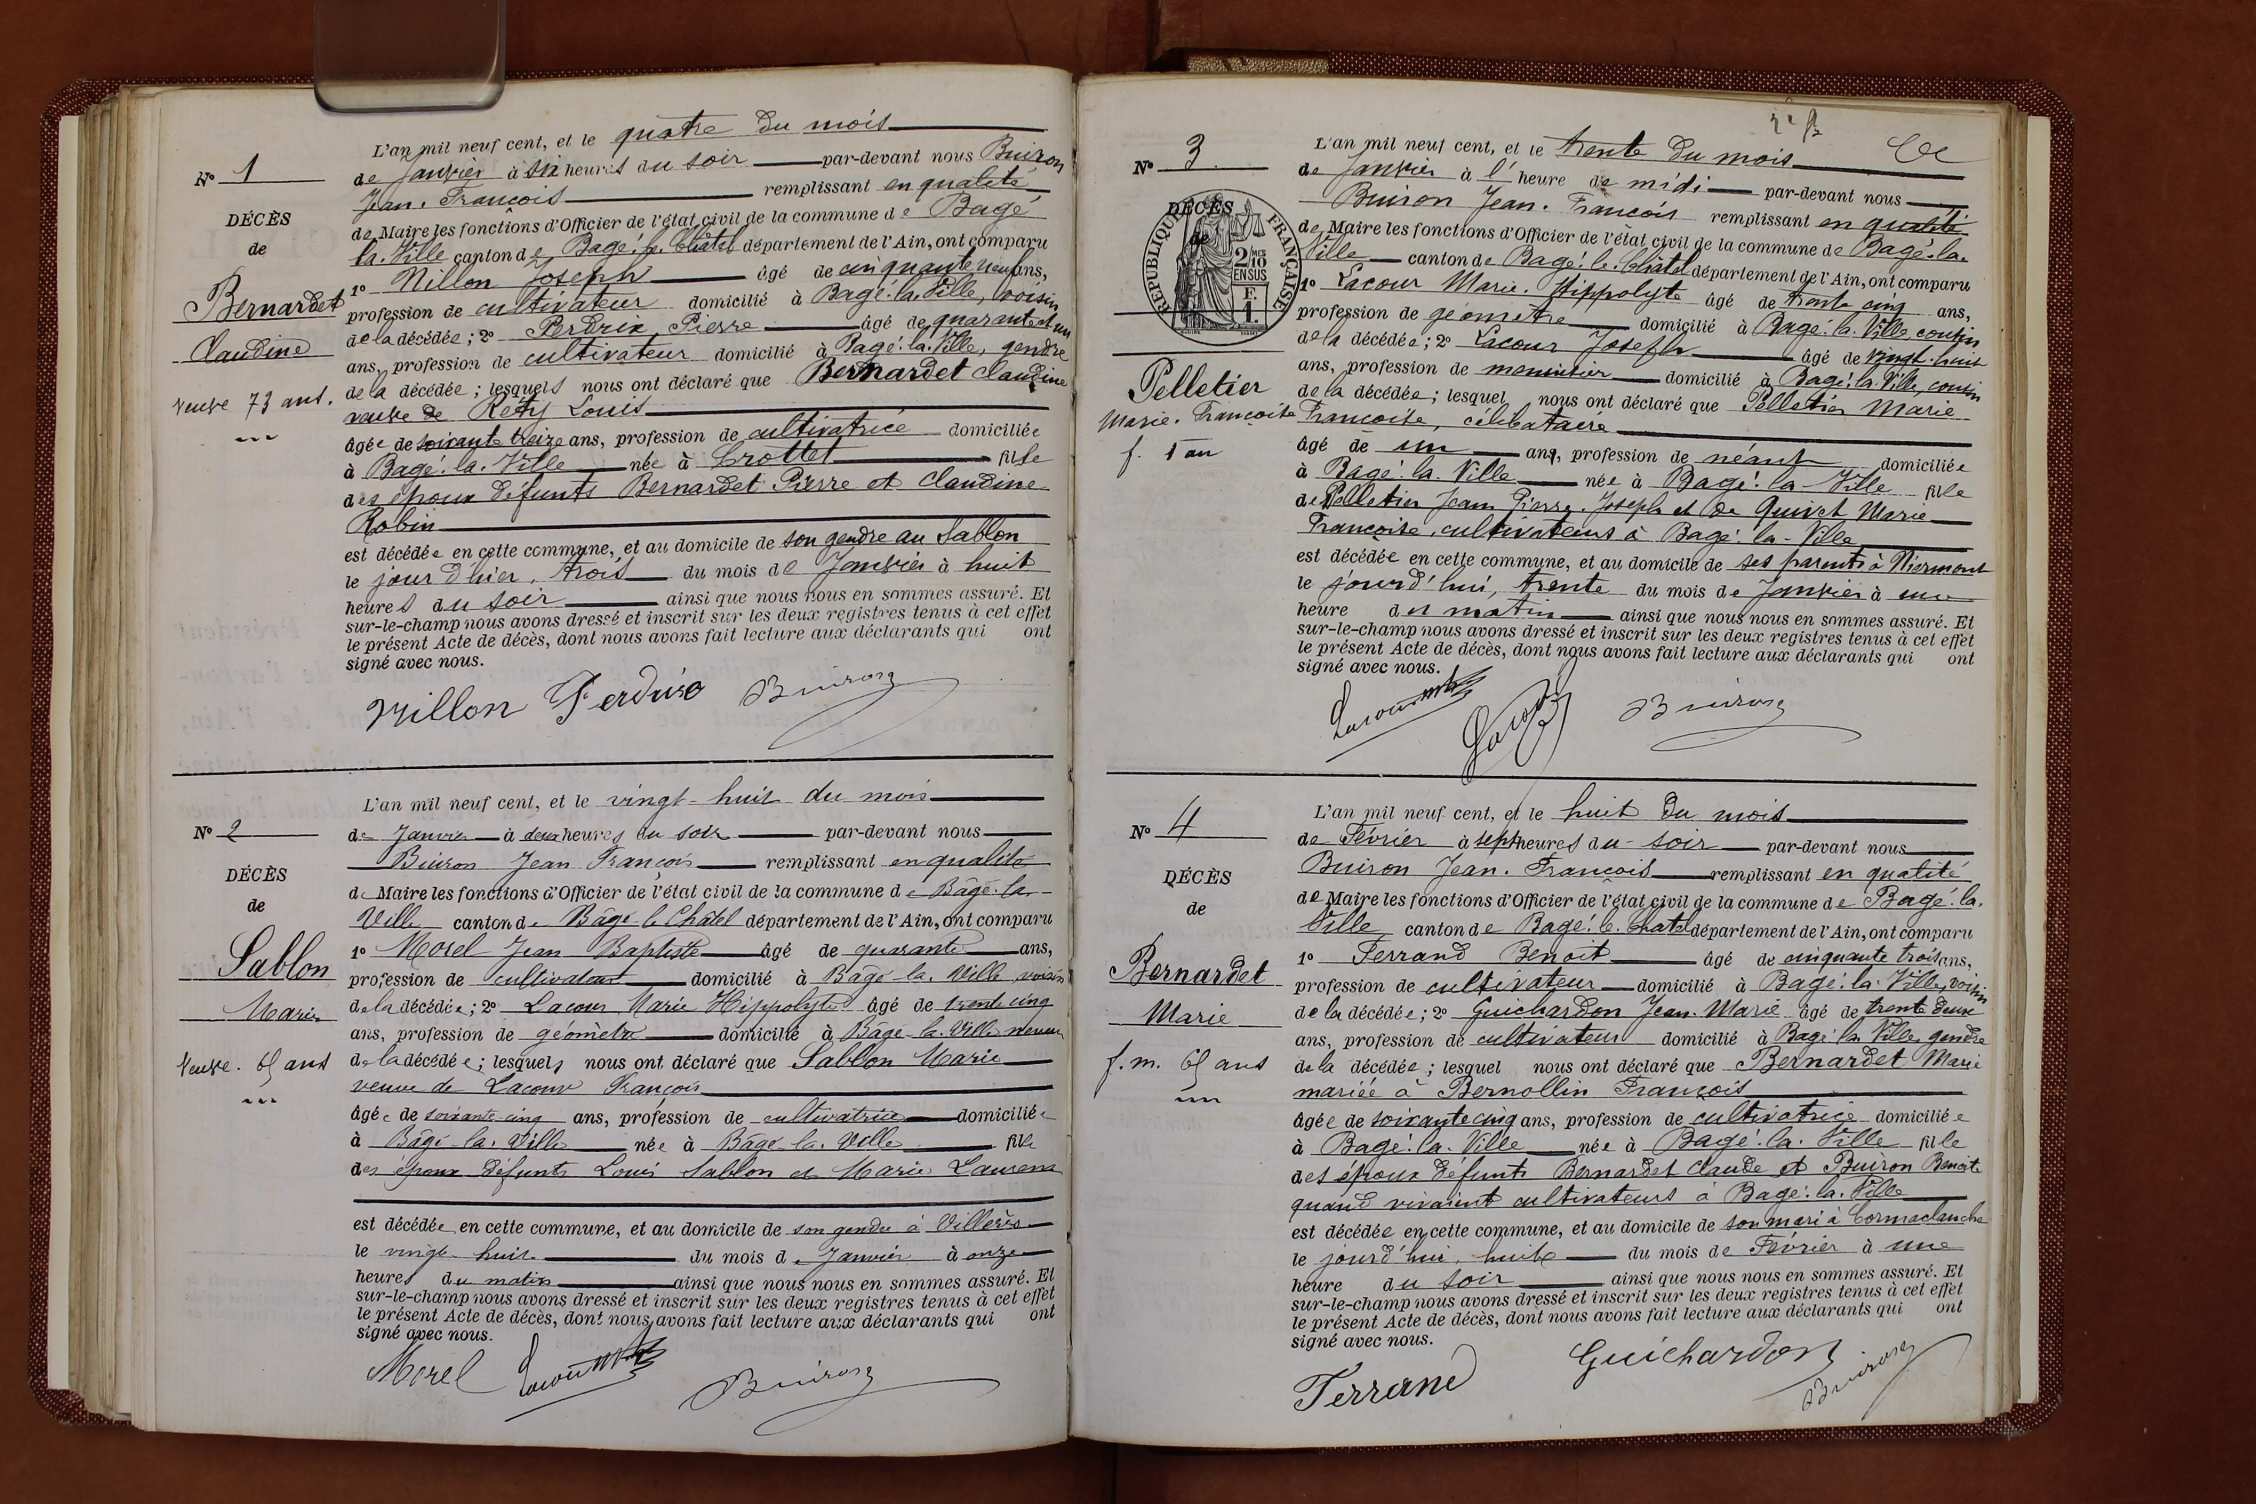 N° 1
DÉCÈS
de
Bernardet
Claudine
veuve 73 ans.
L'an mil neuf cent, et le quatre du mois
de Janvier à six heures du soir par-devant nous Buiron
Jean-François remplissant en qualité
de Maire les fonctions d'Officier de l'état civil de la commune de Bagé
la-Ville canton de Bagé-le-Châtel département de l'Ain, ont comparu
1° Nillon Joseph âgé de cinquante neuf ans,
profession de cultivateur domicilié à Bagé-la-Ville, voisin
de la décédée; 2° Perdrix Pierre âgé de quarante et un
ans, profession de cultivateur domicilié à Bagé-la-Ville, gendre
de la décédée; lesquels nous ont déclaré que Bernardet Claudine
veuve de Réty Louis
âgée de soixante treize ans, profession de cultivatrice domiciliée
à Bagé-la-Ville née à Crottet fille
des époux défunts Bernardet Pierre et Claudine
Robin
est décédée en cette commune, et au domicile de son gendre au Sablon
le jour d'hier, trois du mois de Janvier à huit
heures du soir ainsi que nous nous en sommes assuré. Et
sur-le-champ nous avons dressé et inscrit sur les deux registres tenus à cet effet
le présent Acte de décès, dont nous avons fait lecture aux déclarants qui ont
signé avec nous.
Nillon Perdrix Buiron
N° 2
DÉCÈS
de
Sablon
Marie
Veuve. 65 ans
L'an mil neuf cent, et le vingt-huit du mois
de Janvier à deux heures du soir par-devant nous
Buiron Jean François remplissant en qualité
de Maire les fonctions d'Officier de l'état civil de la commune de Bâgé-la-
Ville canton de Bâgé-le-Châtel département de l'Ain, ont comparu
1° Morel Jean Baptiste âgé de quarante ans,
profession de cultivateur domicilié à Bâgé-la-Ville voisin
de la décédée; 2° Lacour Marie Hippolyte âgé de trente cinq
ans, profession de géomètre domicilié à Bâgé-la-Ville neveu
de la décédée; lesquels nous ont déclaré que Sablon Marie
veuve de Lacour François
âgée de soixante-cinq ans, profession de cultivatrice domiciliée
à Bâgé-la-Ville née à Bâgé-la-Ville fille
des époux défunts Louis Sablon et Marie Laurent
est décédée en cette commune, et au domicile de son gendre à Villeirs
le vingt-huit du mois de Janvier à onze
heures du matin ainsi que nous nous en sommes assuré. Et
sur-le-champ nous avons dressé et inscrit sur les deux registres tenus à cet effet
le présent Acte de décès, dont nous avons fait lecture aux déclarants qui ont
signé avec nous.
Morel Lacour Buiron
N° 3
DÉCÈS
de
RÉPUBLIQUE FRANÇAISE
2/10 EN SUS
F. 1.
Pelletier
Marie-Françoise
f. 1 an
L'an mil neuf cent, et le trente du mois
de Janvier à l'heure de midi par-devant nous
Buiron Jean-François remplissant en qualité
de Maire les fonctions d'Officier de l'état civil de la commune de Bagé-la-
Ville canton de Bagé-le-Châtel département de l'Ain, ont comparu
1° Lacour Marie-Hippolyte âgé de trente cinq ans,
profession de géomètre domicilié à Bagé-la-Ville cousin
de la décédée; 2° Lacour Joseph âgé de vingt-huit
ans, profession de menuisier domicilié à Bagé-la-Ville, cousin
de la décédée; lesquel nous ont déclaré que Pelletier Marie
Françoise, célibataire
âgé de un an, profession de néant domiciliée
à Bagé-la-Ville née à Bagé-la-Ville fille
de Pelletier Jean Pierre-Joseph et de Quivet Marie
Françoise, cultivateurs à Bagé-la-Ville
est décédée en cette commune, et au domicile de ses parents à Niermont
le jourd'hui, trente du mois de Janvier à une
heure du matin ainsi que nous nous en sommes assuré. Et
sur-le-champ nous avons dressé et inscrit sur les deux registres tenus à cet effet
le présent Acte de décès, dont nous avons fait lecture aux déclarants qui ont
signé avec nous.
Lacour Lacour Buiron
N° 4
DÉCÈS
de
Bernardet
Marie
f. m. 65 ans
L'an mil neuf cent, et le huit du mois
de Février à sept heures du soir par-devant nous
Buiron Jean-François remplissant en qualité
de Maire les fonctions d'Officier de l'état civil de la commune de Bagé-la-
Ville canton de Bagé-le-Chatel département de l'Ain, ont comparu
1° Ferrand Benoit âgé de cinquante trois ans,
profession de cultivateur domicilié à Bagé-la-Ville, voisin
de la décédée; 2° Guichardon Jean-Marie âgé de trente deux
ans, profession de cultivateur domicilié à Bagé-la-Ville, gendre
de la décédée; lesquel nous ont déclaré que Bernardet Marie
mariée à Bernollin François
âgée de soixante cinq ans, profession de cultivatrice domiciliée
à Bagé-la-Ville née à Bagé-la-Ville fille
des époux défunts Bernardet Claude et Buiron Benoite
quand vivaient cultivateurs à Bagé-la-Ville
est décédée en cette commune, et au domicile de son mari à Cormaclanche
le jourd'hui, huit du mois de Février à une
heure du soir ainsi que nous nous en sommes assuré. Et
sur-le-champ nous avons dressé et inscrit sur les deux registres tenus à cet effet
le présent Acte de décès, dont nous avons fait lecture aux déclarants qui ont
signé avec nous.
Ferrand Guichardon Buiron